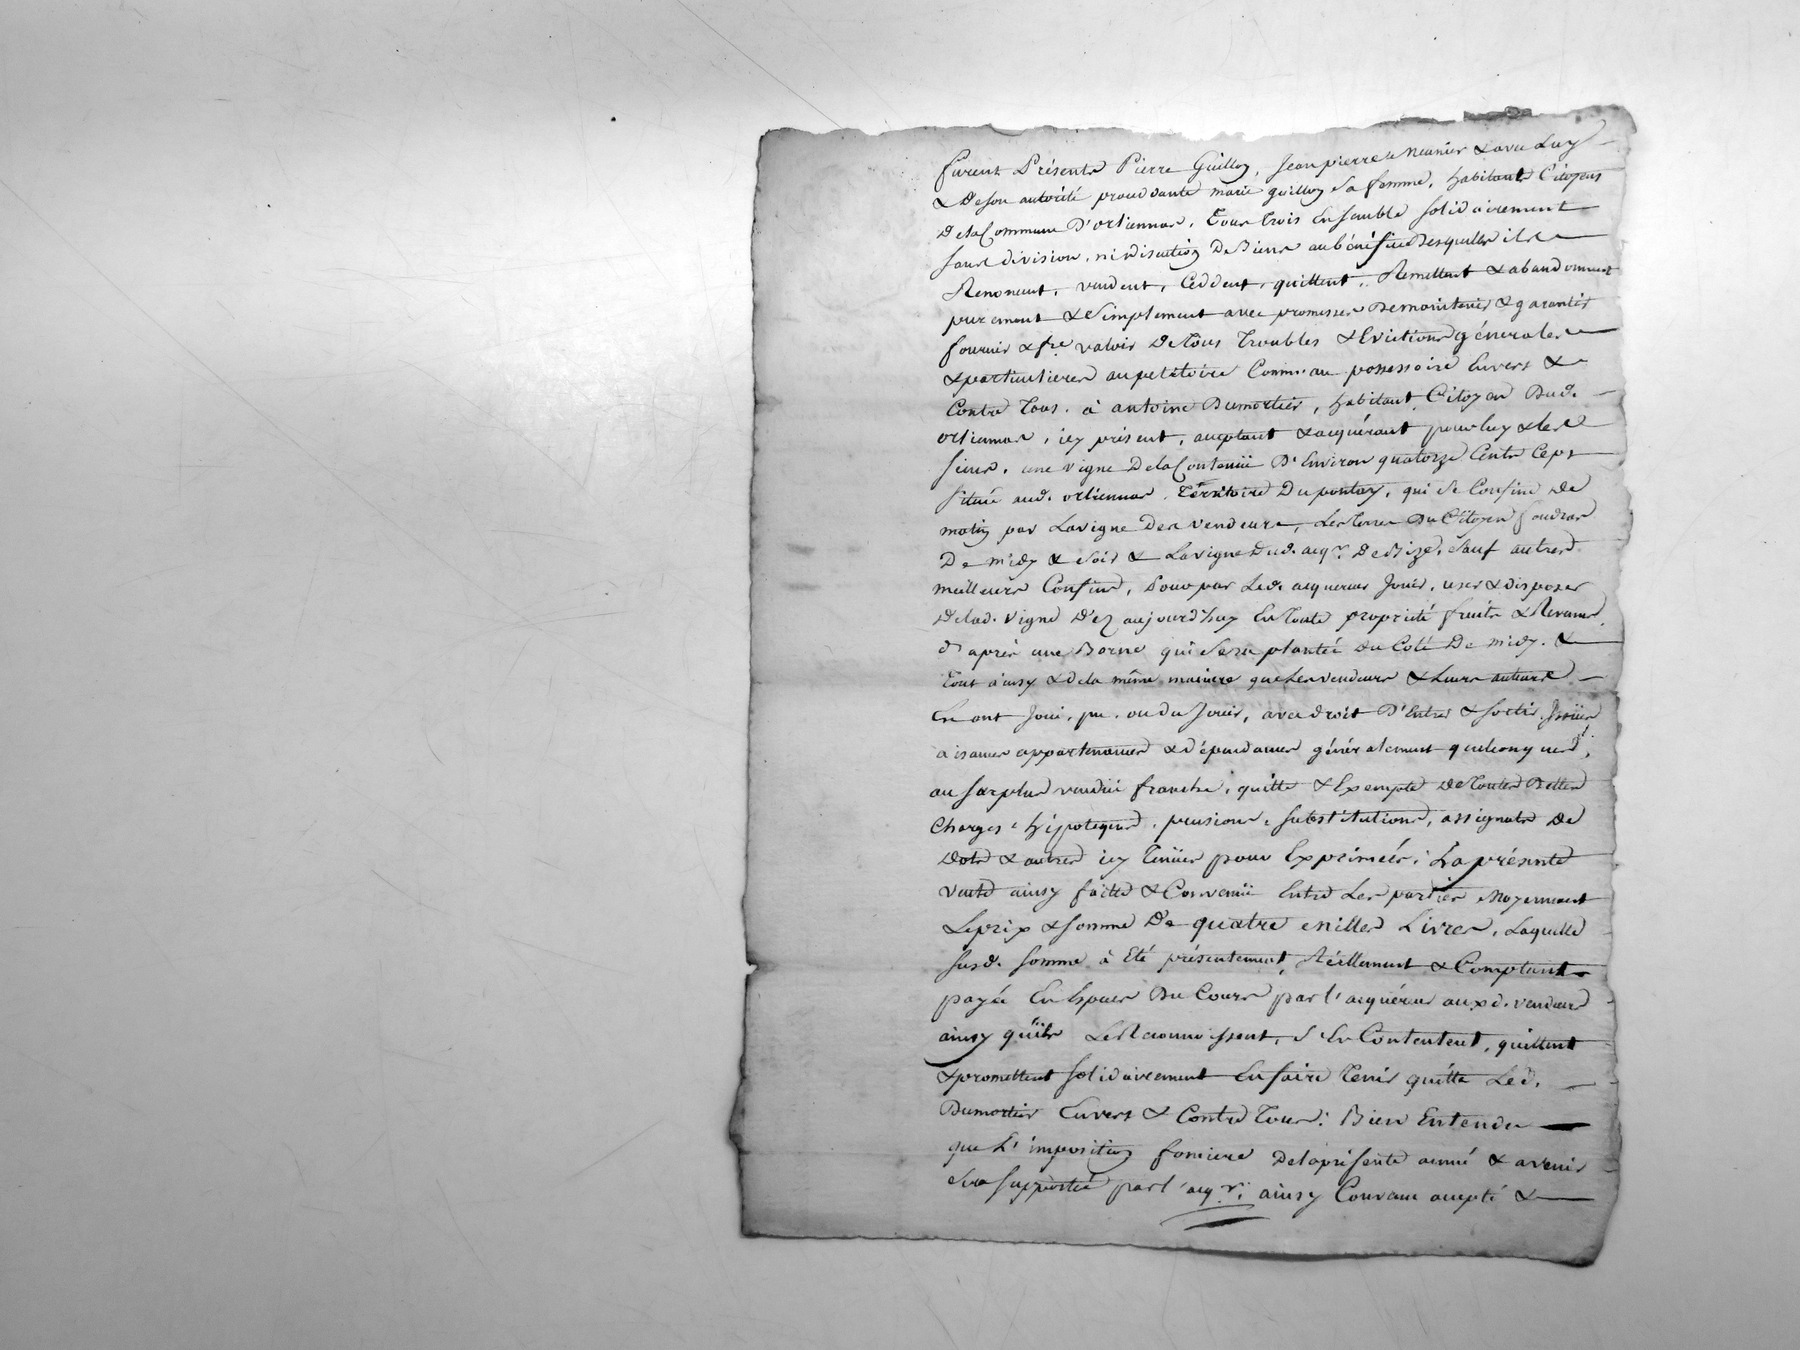 furent Présents Pierre Guilloz, Jean pierre le Meunier & avec Luy
& De son autorité procédante marie guilloz Sa femme, habitants Citoyens
De la Commune D'orliennas, Tous Trois Ensemble Solidairement
sans division, ni discution De Biens au bénéfice Desquelles ils
Renoncent, vendent, Ceddent, quittent, Remettent & abandonnent
purement & Simplement avec promesses De maintenir & garantir
fournir & fre valoir De Tous Troubles & Evictions générales
& particulieres au petitoire Comme au possessoire Envers &
Contre Tous. à antoine Dumortier, habitant Citoyen Dud.
orliennas, icy présent, acceptant & acquérant pour luy & les
siens, une vigne De la Contenüe D'Environ quatorze Cents Ceps
Située aud. orliennas, Territoire Du pontay, qui Se Confine De
matin par La vigne Des vendeurs, Les Terres Du Citoyen foudras
De midy & Soir & La vigne Dud. acqr. De Bize, Sauf autres
meilleurs Confins, Pour par Led. acquereur Jouir, user & disposer
De lad. vigne Dez aujourd'huy En Toute propriété fruits & Revenus,
d'après une Borne qui Sera plantée Du Coté De midy. &
Tout ainsy & De la même maniere que Les vendeurs & Leurs auteurs
En ont Joui, pu, ou du Jouir, avec droit D'Entrer & Sortir, Issües
aisances appartenances & dépendances généralement quelconques,
au Surplus vendüe franche, quitte & Exempte De Toutes Dettes
Charges, hÿpoteques, pensions, Substitutions, assignats De
Dots & autres icy Tenües pour Exprimées; La présente
vente ainsy faitte & Convenüe Entre Les parties Moyennant
Le prix & Somme De quatre milles Livres, Laquelle
Susd. Somme à Eté présentement, Réellement & Comptant
payée En Espèces Du Cours par l'acquéreur auxd. vendeurs
ainsy qu'ils Le Reconnoissent, S'En Contentent, quittent
& promettent Solidairement En faire Tenir quitte Led.
Dumortier Envers & Contre Tous; Bien Entendu
que L'imposition fonciere De la présente année & avenir
Sera Supportée par l'acqr. ainsy Convenu accepté &